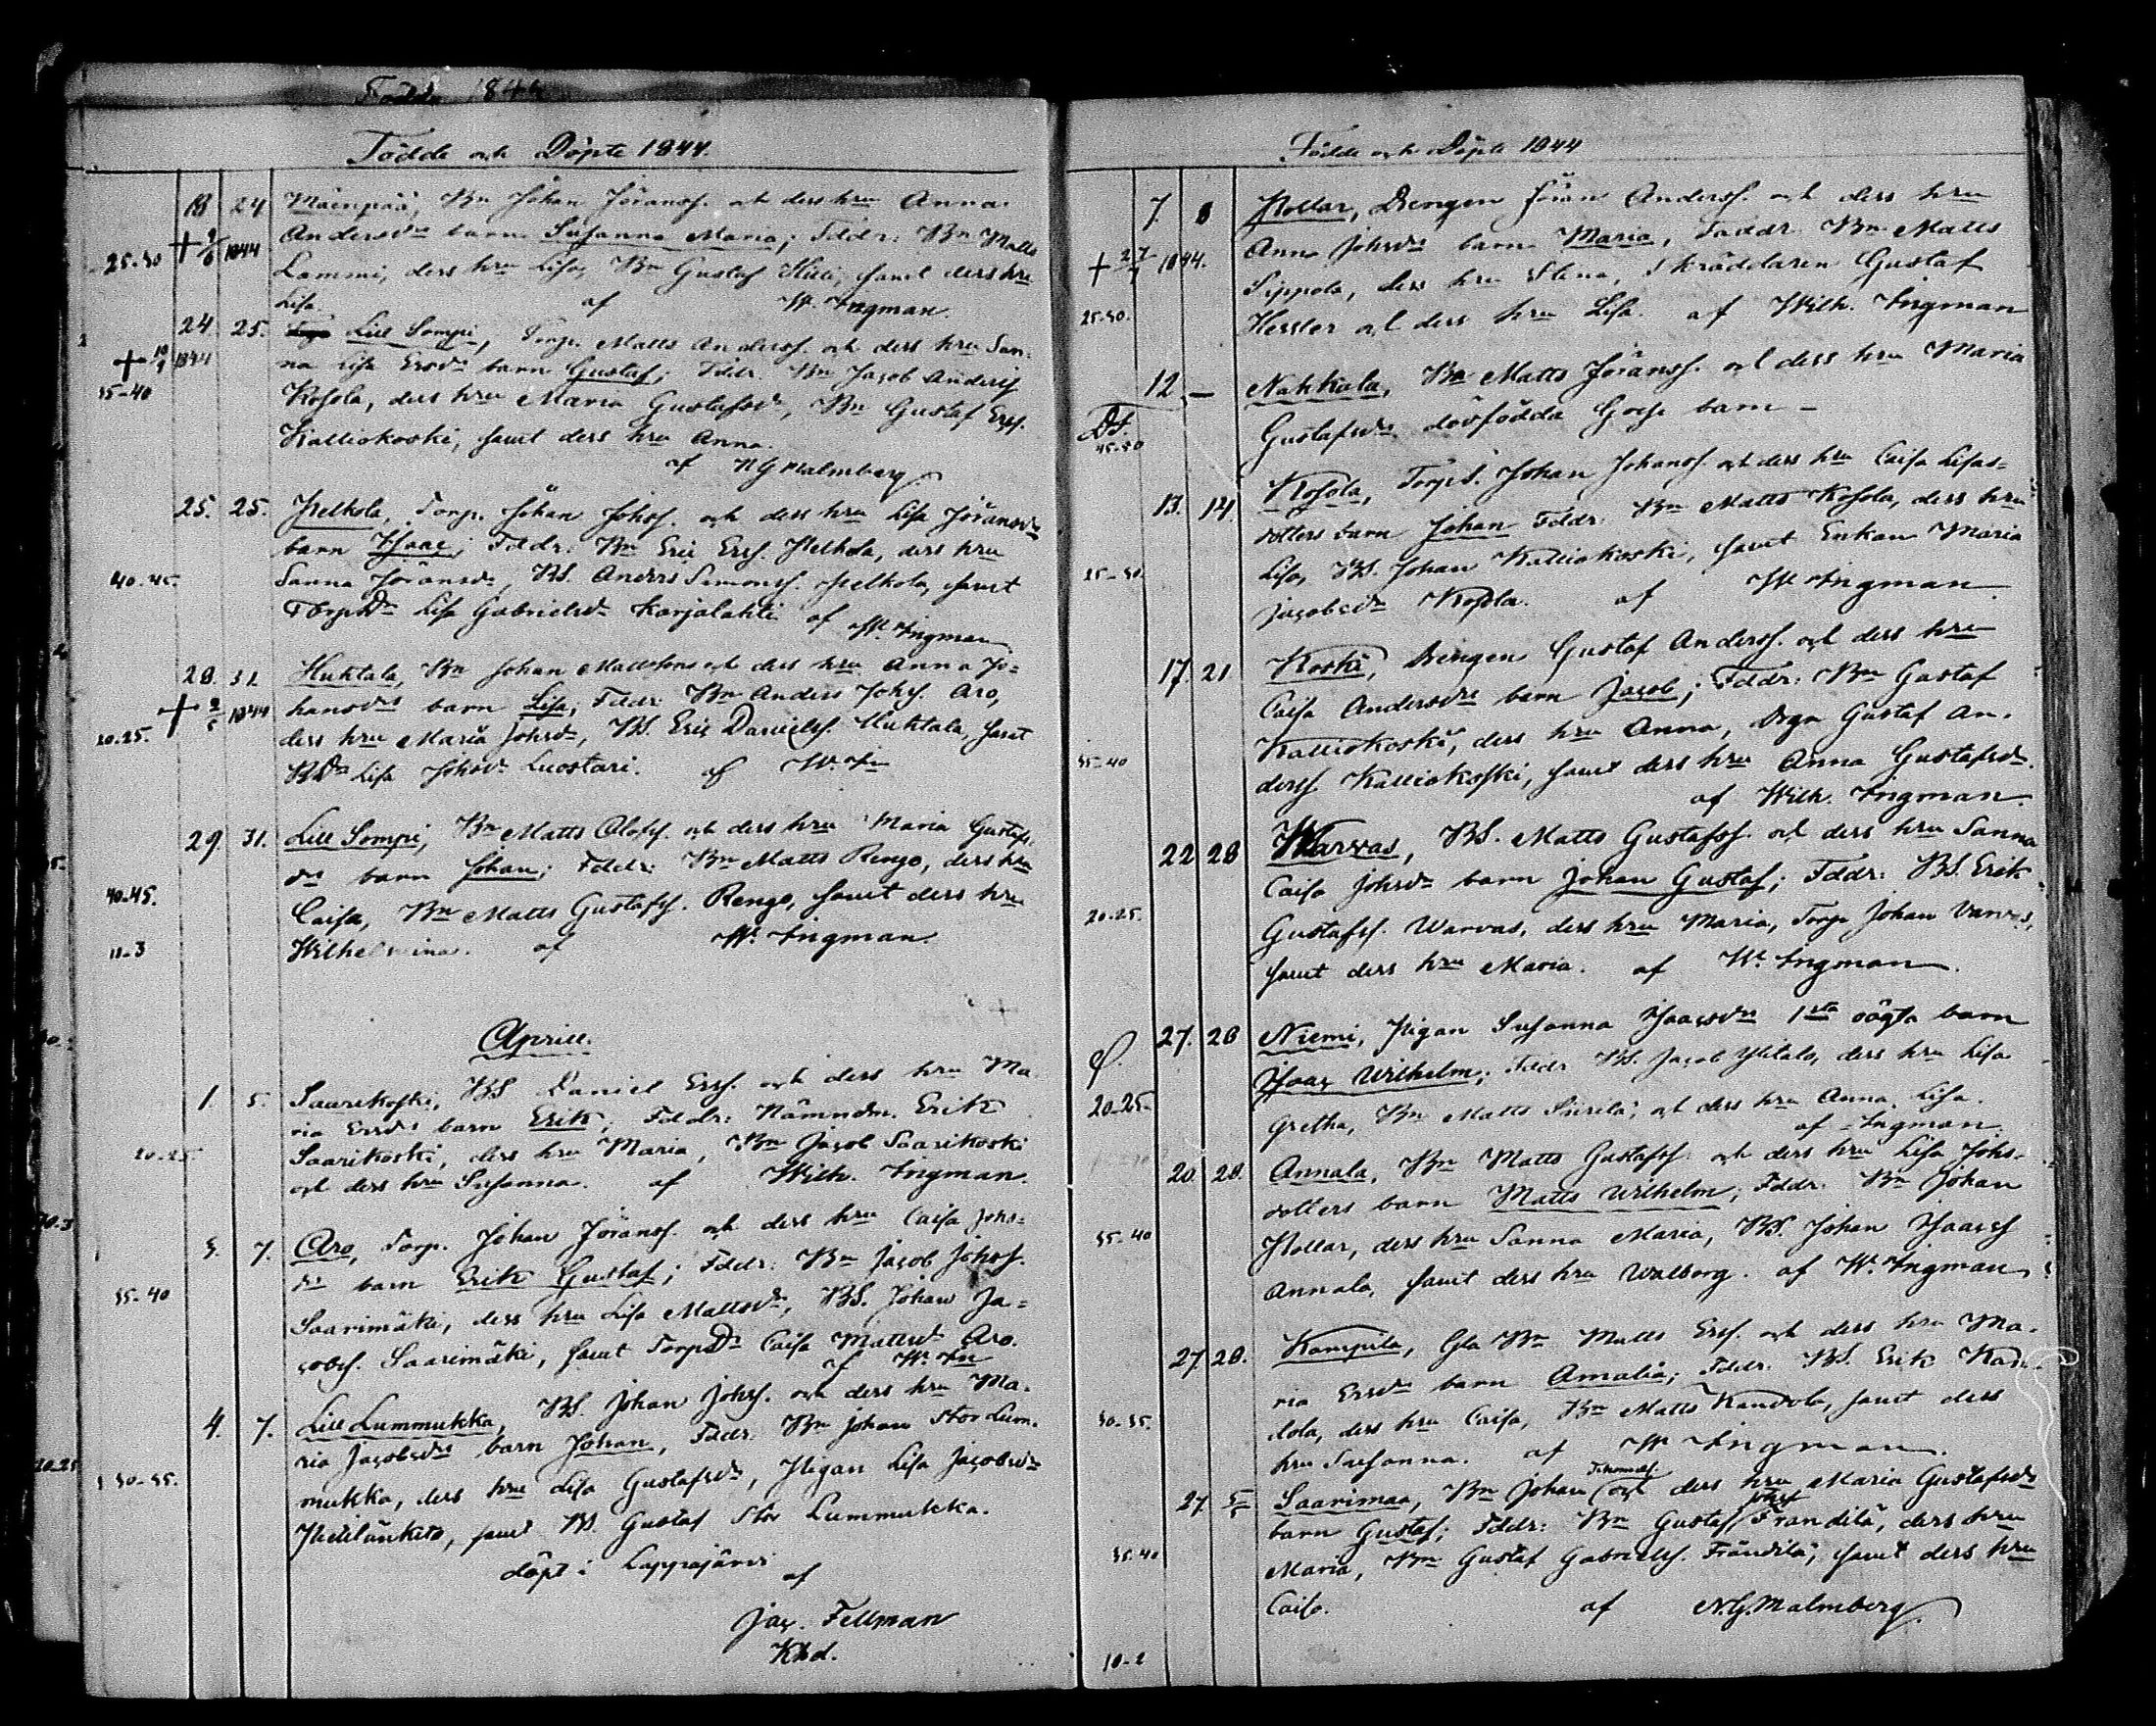 Födde 184
Födde och Döpte 1844.
18 24 Mäenpää, Bn Johan Jöranss. och dess hru Anna
+ 9/6 1844 Andersdr barn Susanna Maria; Fddr: Bn Matts
25-30 Lammi, dess hru Lisa, Bn Gustaf samt dess hru
Lisa. af W. Ingman
24 25. Lill Sompi, Torp. Matts Anderss. och dess hru San-
+ 10/9 1844 na Lisa Ersdr barn Gustaf; Fddr. Bn Jacob Anderss
35-40 Kosola, dess hru Maria Gustafsdr, Bn Gustaf Erss.
Kalliokoski, samt dess hru Anna.
af N G Malmberg
25. 25. Pelkola, Torp. Johan Johss. och dess hru Lisa Jöransdr
barn Isaac; Fddr. Bn Eric Erss. Pelkola, dess hru
40-45. Sanna Jöransdr, BS. Anders Simonss. Pelkola, samt
TorpDr Lisa Gabrielsdr Karjalahti af W. Ingman
28. 31. Huhtala, Bn Johan Mattssons och dess hru Anna Jo-
+ 2/5 1844 hansdr barn Lisa; Fddr. Bn Anders Johss. Aro,
20.25. dess hru Maria Johsdr, BS. Eric Danielss. Huhtala, samt
BDr Lisa Johsdr Luostari. af W. In
29 31. Lill Sompi, Bn Matts Olofss. och dess hru Maria Gustafs-
dr barn Johan; Fddr: Bn Matts Rengo, dess hru
40-45. Caisa, Bn Matts Gustafss. Rengo, samt dess hru
11-3 Wilhelmina. af W. Ingman.
Aprill.
1. 5. Saarikoski, BS Daniel Erss. och dess hru Ma
ria Ersdr barn Erik; Fddr: Nämndm. Erik
20-25 Saarikoski, dess hru Maria, Bn Jacob Saarikoski
och dess hru Susanna. af Wilh. Ingman.
3. 7. Aro, Torp. Johan Jöranss. och dess hru Caisa Johs-
dr barn Erik Gustaf; Fddr: Bn Jacob Johss.
35-40 Saarimäki, dess hru Lisa Mattsdr, BS. Johan Ja-
cobss. Saarimäki, samt TorpDr Caisa Mattsdr Aro.
af W. In
4. 7. Lill Lummukka, BS. Johan Johss. och dess hru Ma-
ria Jacobsdr barn Johan, Fddr. Bn Johan Stor Lum-
30-35. mukka, dess hru Lisa Gustafsdr, Pigan Lisa Jacobsdr
samt BS. Gustaf Stor Lummukka.
döpt i Lappajärvi
af
Jac. Fellman
Khd.
Födde och Döpte 1844
7. 8 Pollar, Drengen Jöran Anderss. och dess hru
Anna Johsdr barn Maria, Faddr. Bn Matts
+ 27/7 1844. Sippola, dess hru Stina, Skräddaren Gustaf
25-30. Hessler och dess hru Lisa. af Wilh. Ingman
12. — Nahkala, Bn Matts Jöranss. och dess hru Maria
Df. 45-50 Gustafsdr dödfödda Gosse barn —
13. 14. Kosola, TorpS. Johan Johanss. och dess hru Caisa Lisas-
dotters barn Johan Fddr. Bn Matts Kosola, dess hru
25-30. Lisa, BS. Johan Kalliokoski, samt Enkan Maria
Jacobsdr Kosola. af W. Ingman.
17. 21 Koski, Drengen Gustaf Anderss. och dess hru
Caisa Andersdr barn Jacob; Fddr: Bn Gustaf
35-40 Kalliokoski, dess hru Anna, Drgn Gustaf An-
derss Kalliokoski, samt dess hru Anna Gustafsdr.
af Wilh. Ingman.
22 28 Warvas, BS. Matts Gustafss. och dess hru Sanna
Caisa Johsdr barn Johan Gustaf; Fddr: BS. Erik
20-25. Gustafss. Warvas, dess hru Maria, Torp. Johan Varvas,
samt dess hru Maria. af W. Ingman.
27. 28 Niemi, Pigan Susanna Isaacsdr 1sta oägta barn
Isaac Wilhelm; Fddr BS. Jacob Ylitalo, dess hru Lisa
20-25- Gretha, Bn Matts Siirilä, och dess hru Anna Lisa.
af Ingman.
20. 28. Annala, Bn Matts Gustafss. och dess hru Lisa Johs-
dotters barn Matts Wilhelm; Fddr. Bn Johan
35-40 Pollar, dess hru Sanna Maria, BS. Johan Isaacss
Annala, samt dess hru Walborg. af W. Ingman
27 28. Kampila, Gla Bn Matts Erss. och dess hru Ma-
ria Ersdr barn Amalia; Fddr. BS. Erik Kan-
30-35. dola, dess hru Caisa, Bn Matts Kandola, samt dess
hru Susanna. af W Ingman.
27. 5/5 Saarimaa, Bn Johan och dess hru Maria Gustafsdr
barn Gustaf; Fddr: Bn Gustaf Johss Frändilä, dess hru
35-40 Maria, Bn Gustaf Gabrielss. Frändilä, samt dess hru
Caisa. af N.G. Malmberg
10-2